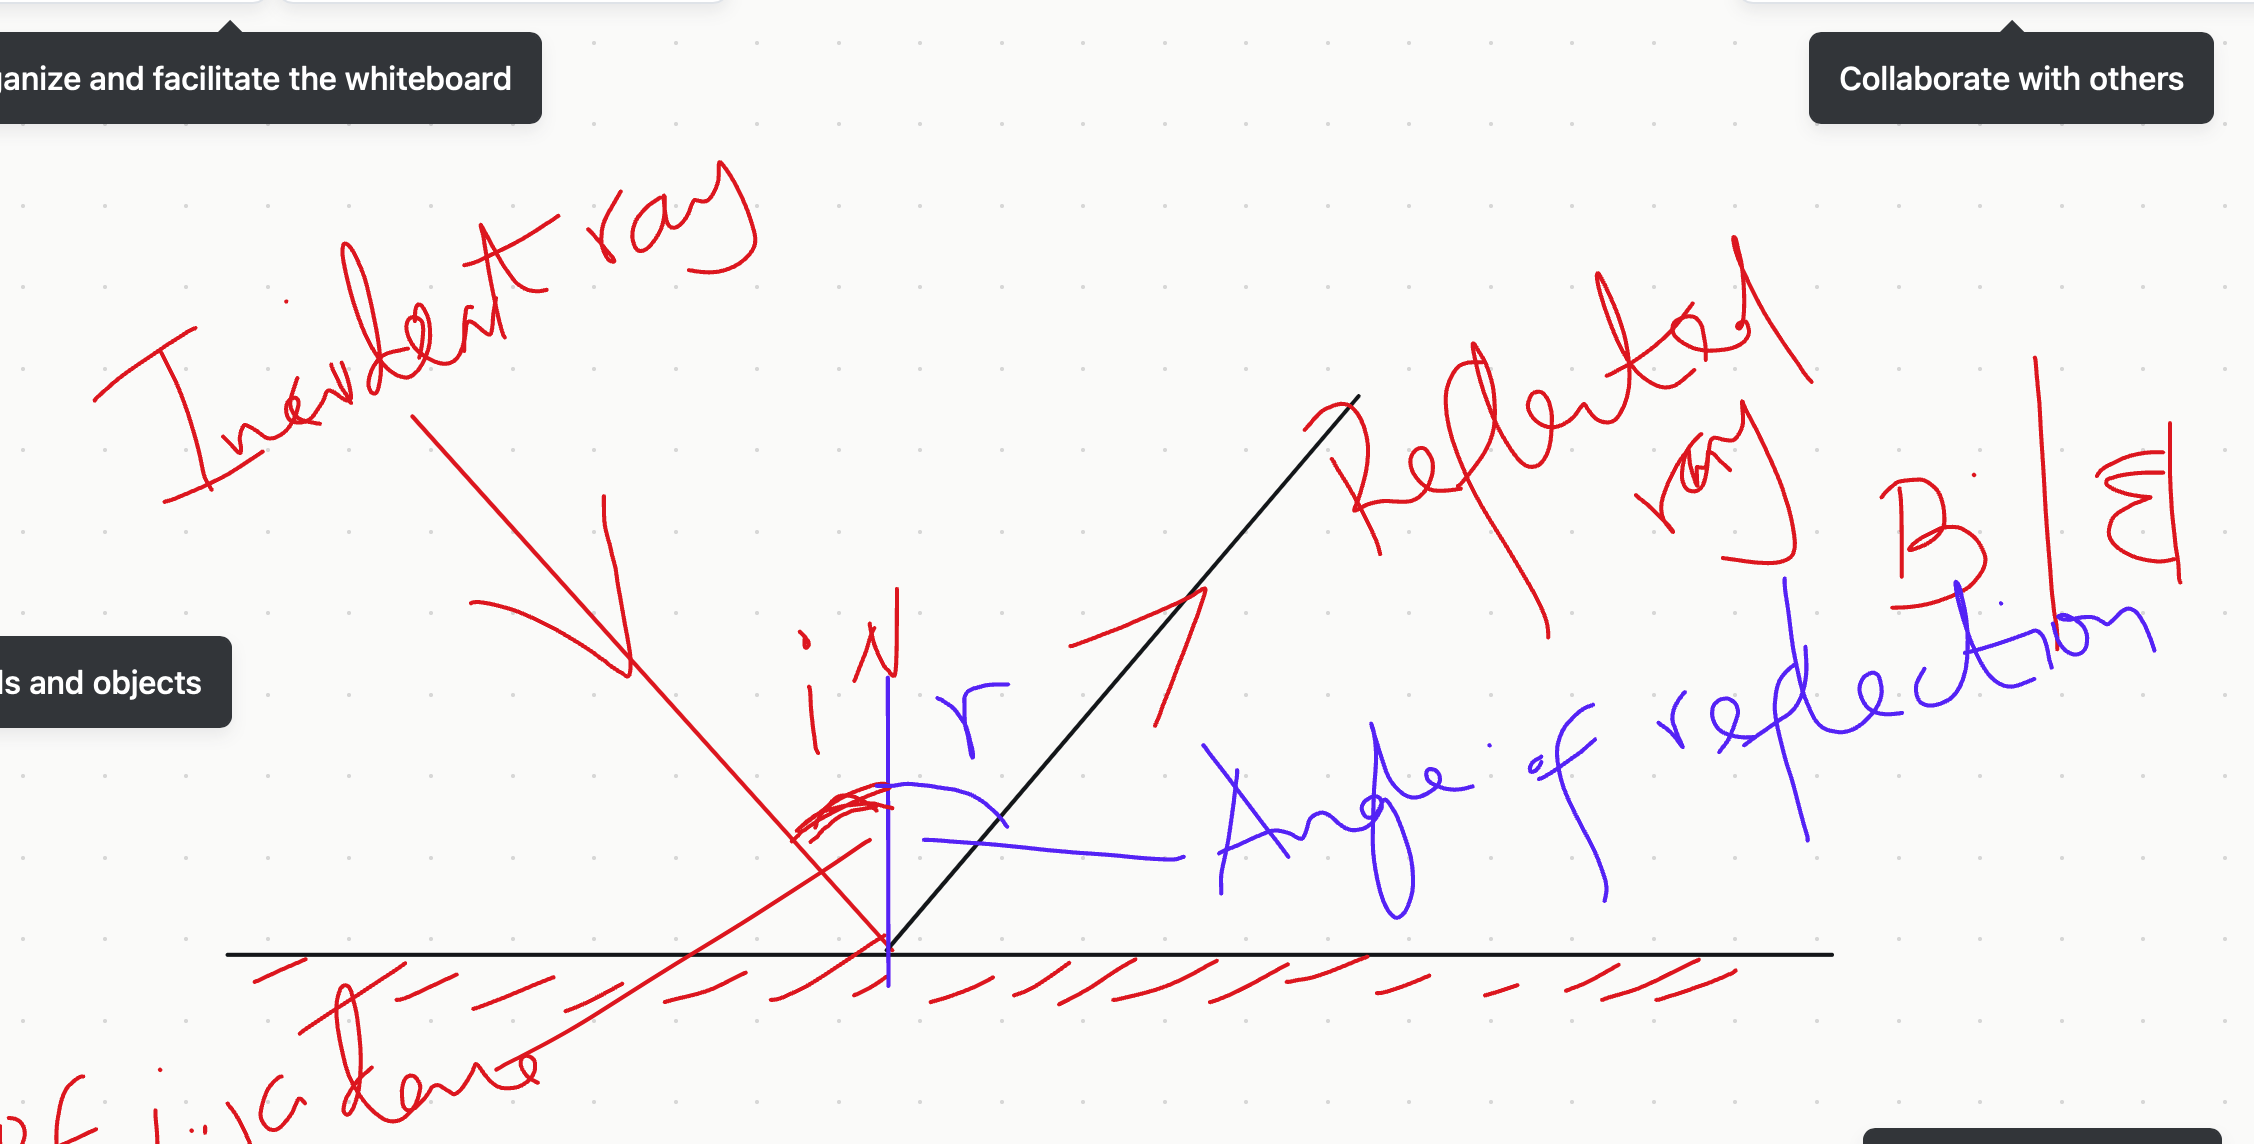 ganize and facilitate the whiteboard
Collaborate with others
Incident ray
Reflected
ray
B | E
ls and objects
i N
r
Angle of reflection
of incidence